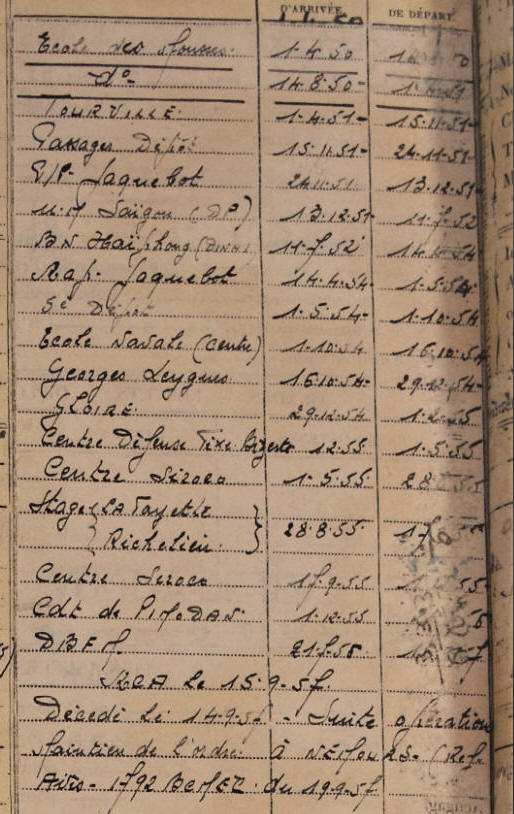 D'ARRIVÉE DE DÉPART
Ecole des Mousses 1.4.50
d° 14.8.50 -
TOURVILLE 1-4.51- 15.11.51-
Passages Dépôt 15.11.51- 24.11.51
E/P- Jaquebot 24.11.51 13.12.51
U.M Saïgon (DP) 13.12.51 11.7.52
BN Haïphong 11.7.52 14.4.54
Rap. Jaquebot 14.4.54- 1.5.54
5e Dépôt 1.5.54- 1.10.54
Ecole Navale (Centre) 1.10.54 16.10.54
Georges Leygues 16.10.54- 29.12.54-
GLOIRE 29.12.54 1.2.55
Centre Défense Fixe Bizerte 1.2.55 1.5.55
Centre Siroco 1.5.55 28
Stage { LA Fayette }
{ Richelieu } 28.8.55 17
Centre Siroco 17.9.55 55
Cdt de PIMODAN 1.12.55
DBFM 21.7.56
RCA le 15.9.57.
Décédé le 14.9.57 - Suite opérations
Maintien de l'ordre à NEMOURS- (Ref.
Avis- 1792 du 19.9.57